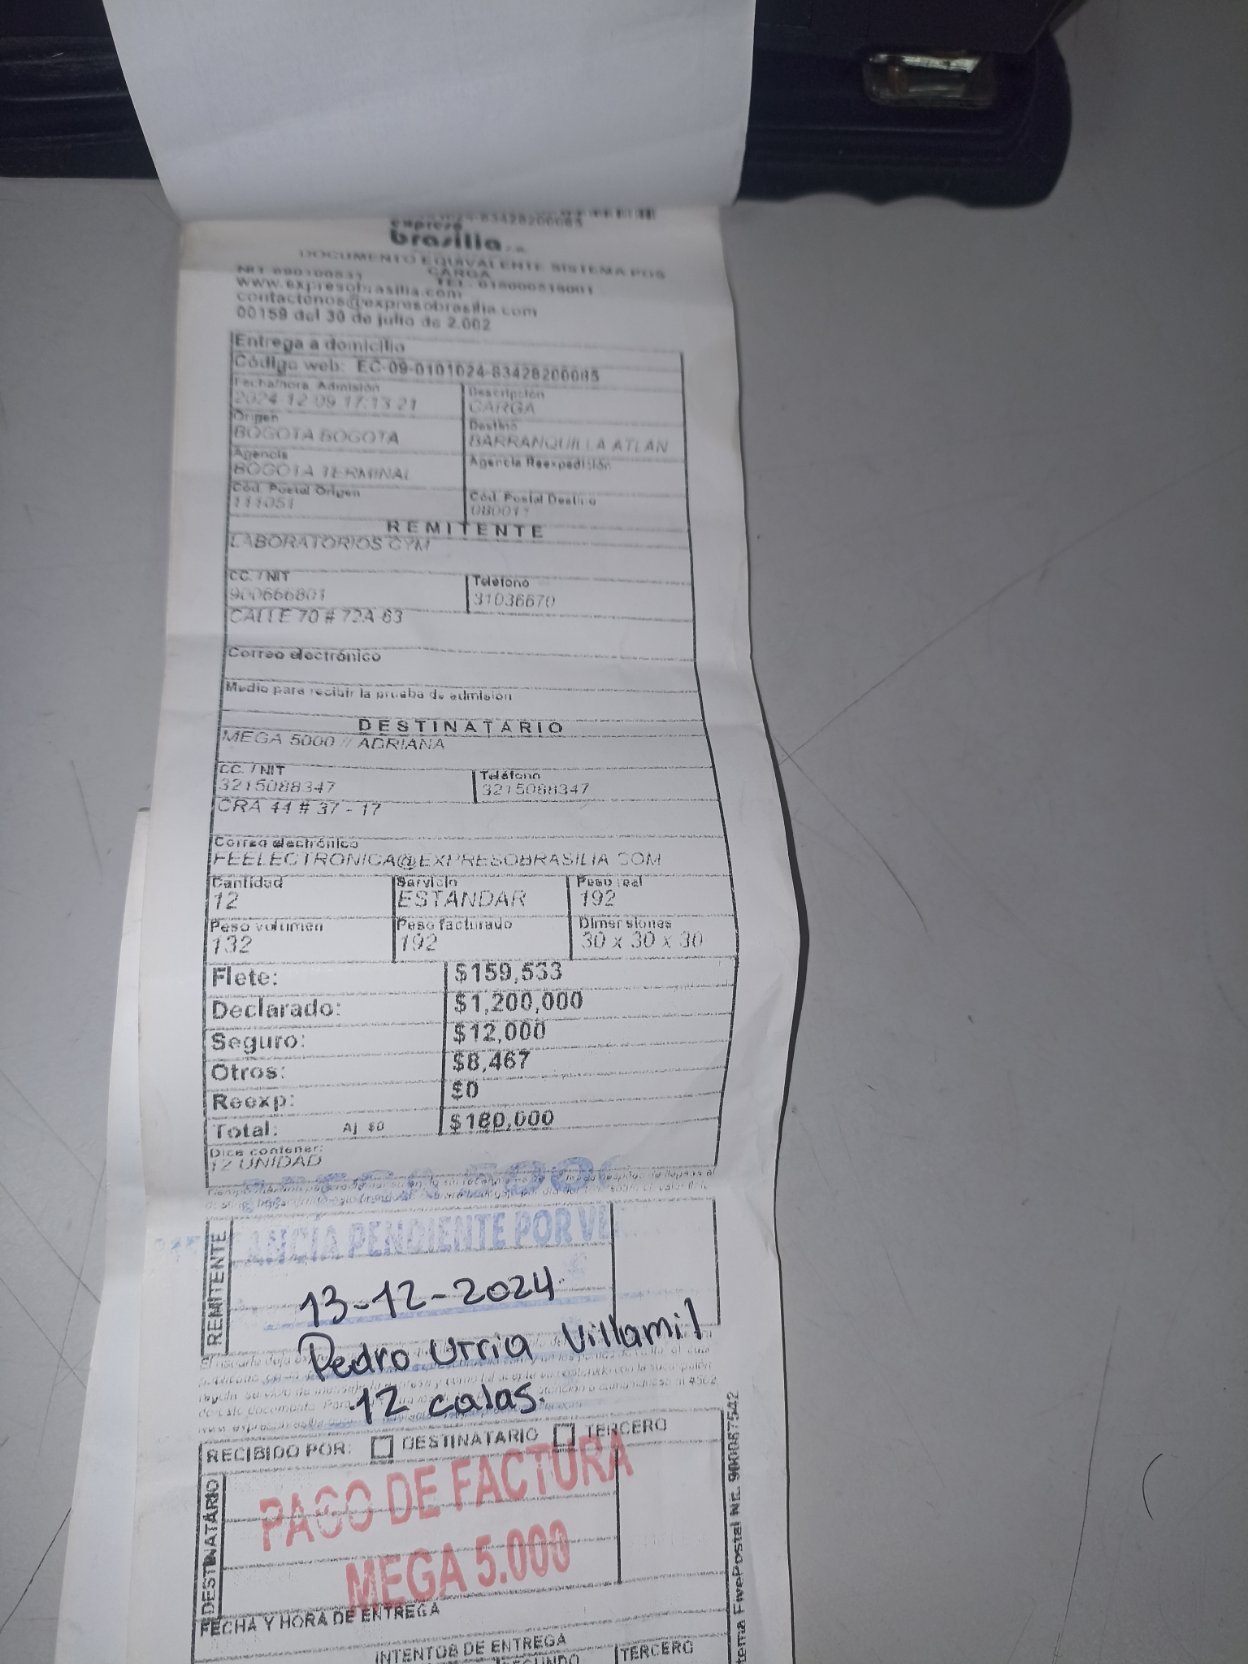 expreso
brasilia S.A.
DOCUMENTO EQUIVALENTE SISTEMA POS
CARGA
NIT 890100531 TEL: 018000518001
www.expresobrasilia.com
contactenos@expresobrasilia.com
00159 del 30 de julio de 2.002
Entrega a domicilio
Código web: EC-09-0101024-83428200085
Fecha/hora Admisión Descripción
2024-12-09 17:13:21 CARGA
Origen Destino
BOGOTA BOGOTA BARRANQUILLA ATLAN
Agencia Agencia Reexpedición
BOGOTA TERMINAL
Cód. Postal Origen Cód. Postal Destino
111051 080011
REMITENTE
LABORATORIOS CYM
CC. / NIT Teléfono
900666801 31036670
CALLE 70 # 72A 63
Correo electrónico
Medio para recibir la prueba de admisión
DESTINATARIO
MEGA 5000 // ADRIANA
CC. / NIT Teléfono
3215088347 3215088347
CRA 44 # 37 - 17
Correo electrónico
FEELECTRONICA@EXPRESOBRASILIA.COM
Cantidad Servicio Peso real
12 ESTANDAR 192
Peso volumen Peso facturado Dimensiones
132 192 30 x 30 x 30
Flete: $159,533
Declarado: $1,200,000
Seguro: $12,000
Otros: $8,467
Reexp: $0
Total: Aj $0 $180,000
Dice contener:
12 UNIDAD
PENDIENTE POR
REMITENTE
13-12-2024
Pedro Urria Villamil
12 cajas.
RECIBIDO POR: DESTINATARIO TERCERO
PAGO DE FACTURA
MEGA 5.000
DESTINATARIO
FECHA Y HORA DE ENTREGA
INTENTOS DE ENTREGA
TERCERO
FivePostal Nit. 900087542